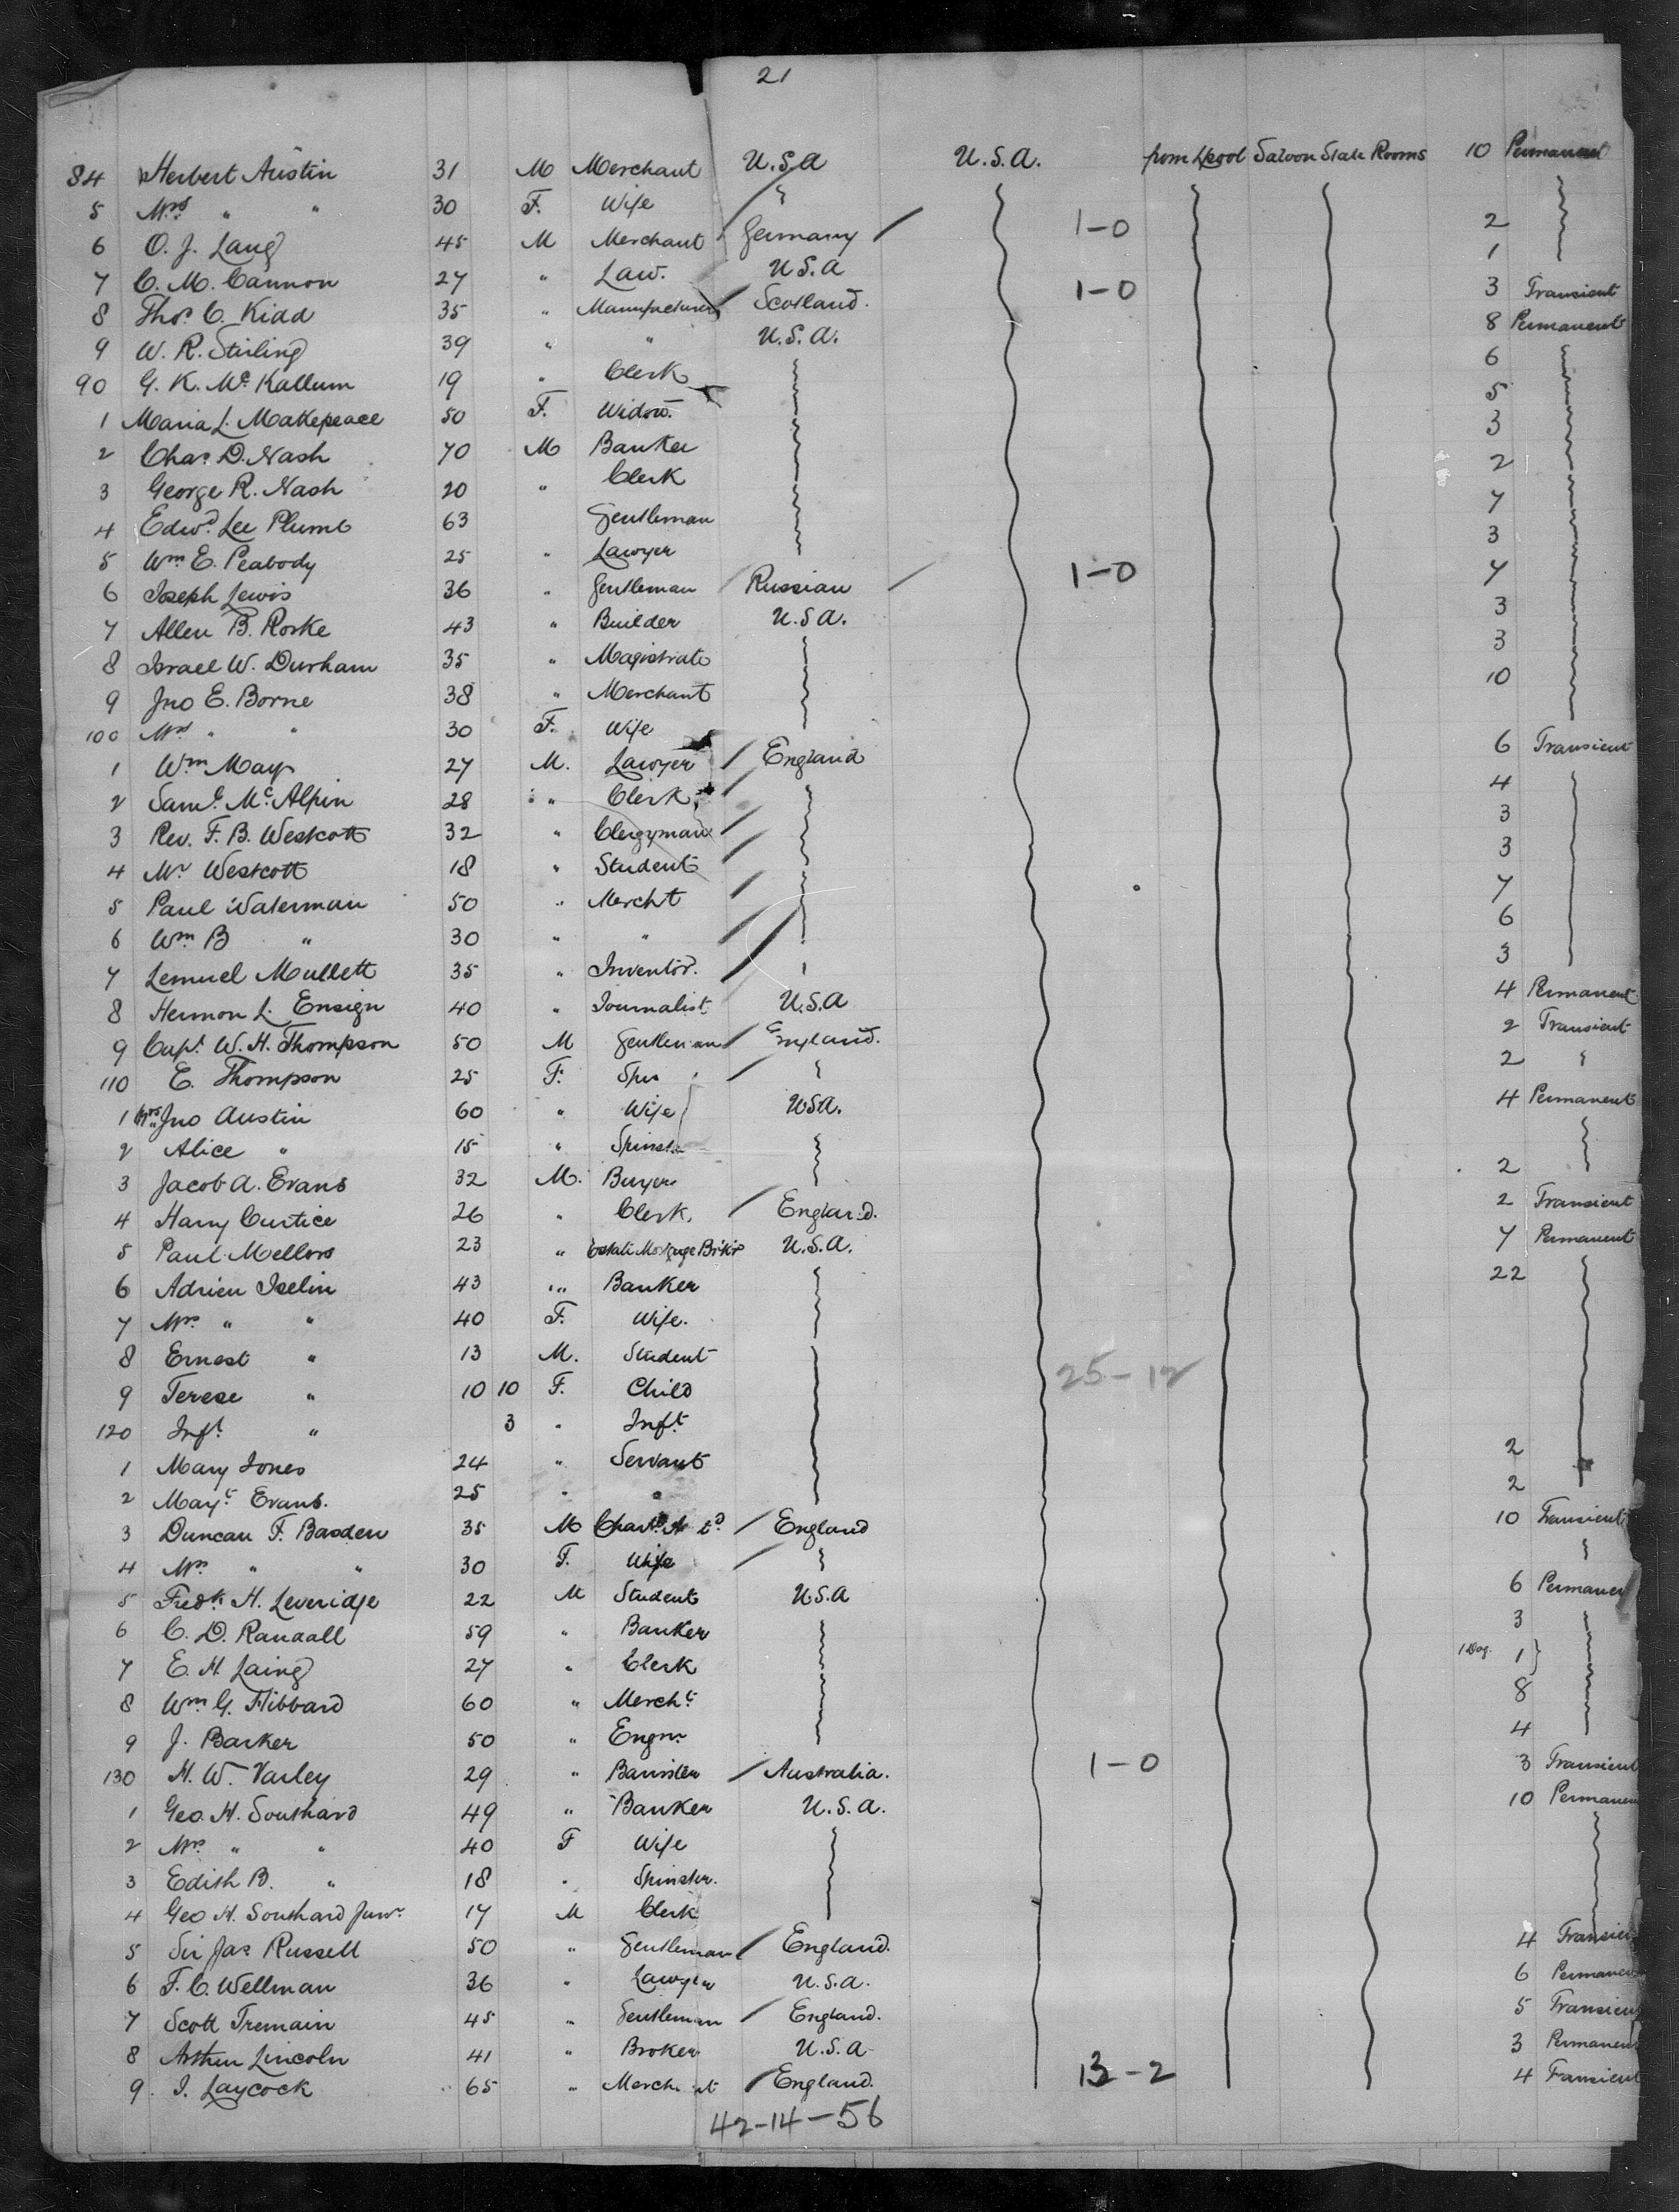 21
84 Herbert Austin 31 M Merchant U.S.A U.S.A. from Lpool Saloon State Rooms 10 Permanent
5 Mrs " " 30 F. Wife
6 O. J. Lang 45 M Merchant Germany 1-0 2
7 C. M. Cannon 27 " Law. U.S.A 1
8 Thos. C. Kidd 35 " Manufacturer Scotland. 1-0 3 Transient
9 W. R. Stirling 39 " " U.S.A. 8 Permanent
90 G. K. Mc Kallum 19 " Clerk 6
1 Maria L. Makepeace 50 F. Widow. 5
2 Chas. D. Nash 70 M Banker 3
3 George R. Nash 20 " Clerk 2
4 Edwd. Lee Plumb 63 Gentleman 7
5 Wm E. Peabody 25 " Lawyer 3
6 Joseph Lewis 36 " Gentleman Russian 1-0 7
7 Allen B. Rorke 43 " Builder U.S.A. 3
8 Israel W. Durham 35 " Magistrate 3
9 Jno E. Borne 38 " Merchant 10
100 Mrs " " 30 F. Wife
1 Wm May 27 M. Lawyer England 6 Transient
2 Saml. Mc Alpin 28 " Clerk 4
3 Rev. F. B. Westcott 32 " Clergyman 3
4 Mr Westcott 18 " Student 3
5 Paul Waterman 50 " Mercht 7
6 Wm B " 30 " " 6
7 Lemuel Mullett 35 " Inventor. 3
8 Hermon L. Ensign 40 " Journalist U.S.A 4 Permanent
9 Capt. W. H. Thompson 50 M Gentleman England. 2 Transient
110 E. Thompson 25 F. Spin 2
1 Mrs Jno Austin 60 " Wife USA. 4 Permanent
2 Alice " 15 " Spinst
3 Jacob A. Evans 32 M. Buyer 2
4 Harry Curtice 26 " Clerk. England. 2 Transient
5 Paul Mellors 23 " Estate Mortgage Brkr U.S.A. 7 Permanent
6 Adrien Iselin 43 " Banker 22
7 Mrs " " 40 F. Wife.
8 Ernest " 13 M. Student 25-12
9 Terese " 10 10 F. Child
120 Inft. " 3 " Inft.
1 Mary Jones 24 " Servant 2
2 Mayt Evans. 25 " " 2
3 Duncan F. Basden 35 M Chartd England 10 Transient
4 Mrs " " 30 F. Wife
5 Fredk. H. Leveridge 22 M Student U.S.A 6 Permanen
6 C. D. Randall 59 " Banker 3
7 E. H. Laing 27 " Clerk 1 Dog. 1
8 Wm G. Hibbard 60 " Mercht 8
9 J. Barker 50 " Engnr 4
130 H. W. Varley 29 " Barrister Australia. 1-0 3 Transient
1 Geo. H. Southard 49 " Banker U.S.A. 10 Permanen
2 Mrs " " 40 F Wife
3 Edith B. " 18 " Spinster.
4 Geo H. Southard Junr 17 M Clerk
5 Sir Jas Russell 50 " Gentleman England. 4 Transien
6 F. C. Wellman 36 " Lawyer U.S.A. 6 Permanen
7 Scott Tremain 45 " Gentleman England. 5 Transien
8 Arthur Lincoln 41 " Broker U.S.A 3 Permanen
9. I. Laycock 65 " Merchant England. 13-2 4 Transient
42-14-56